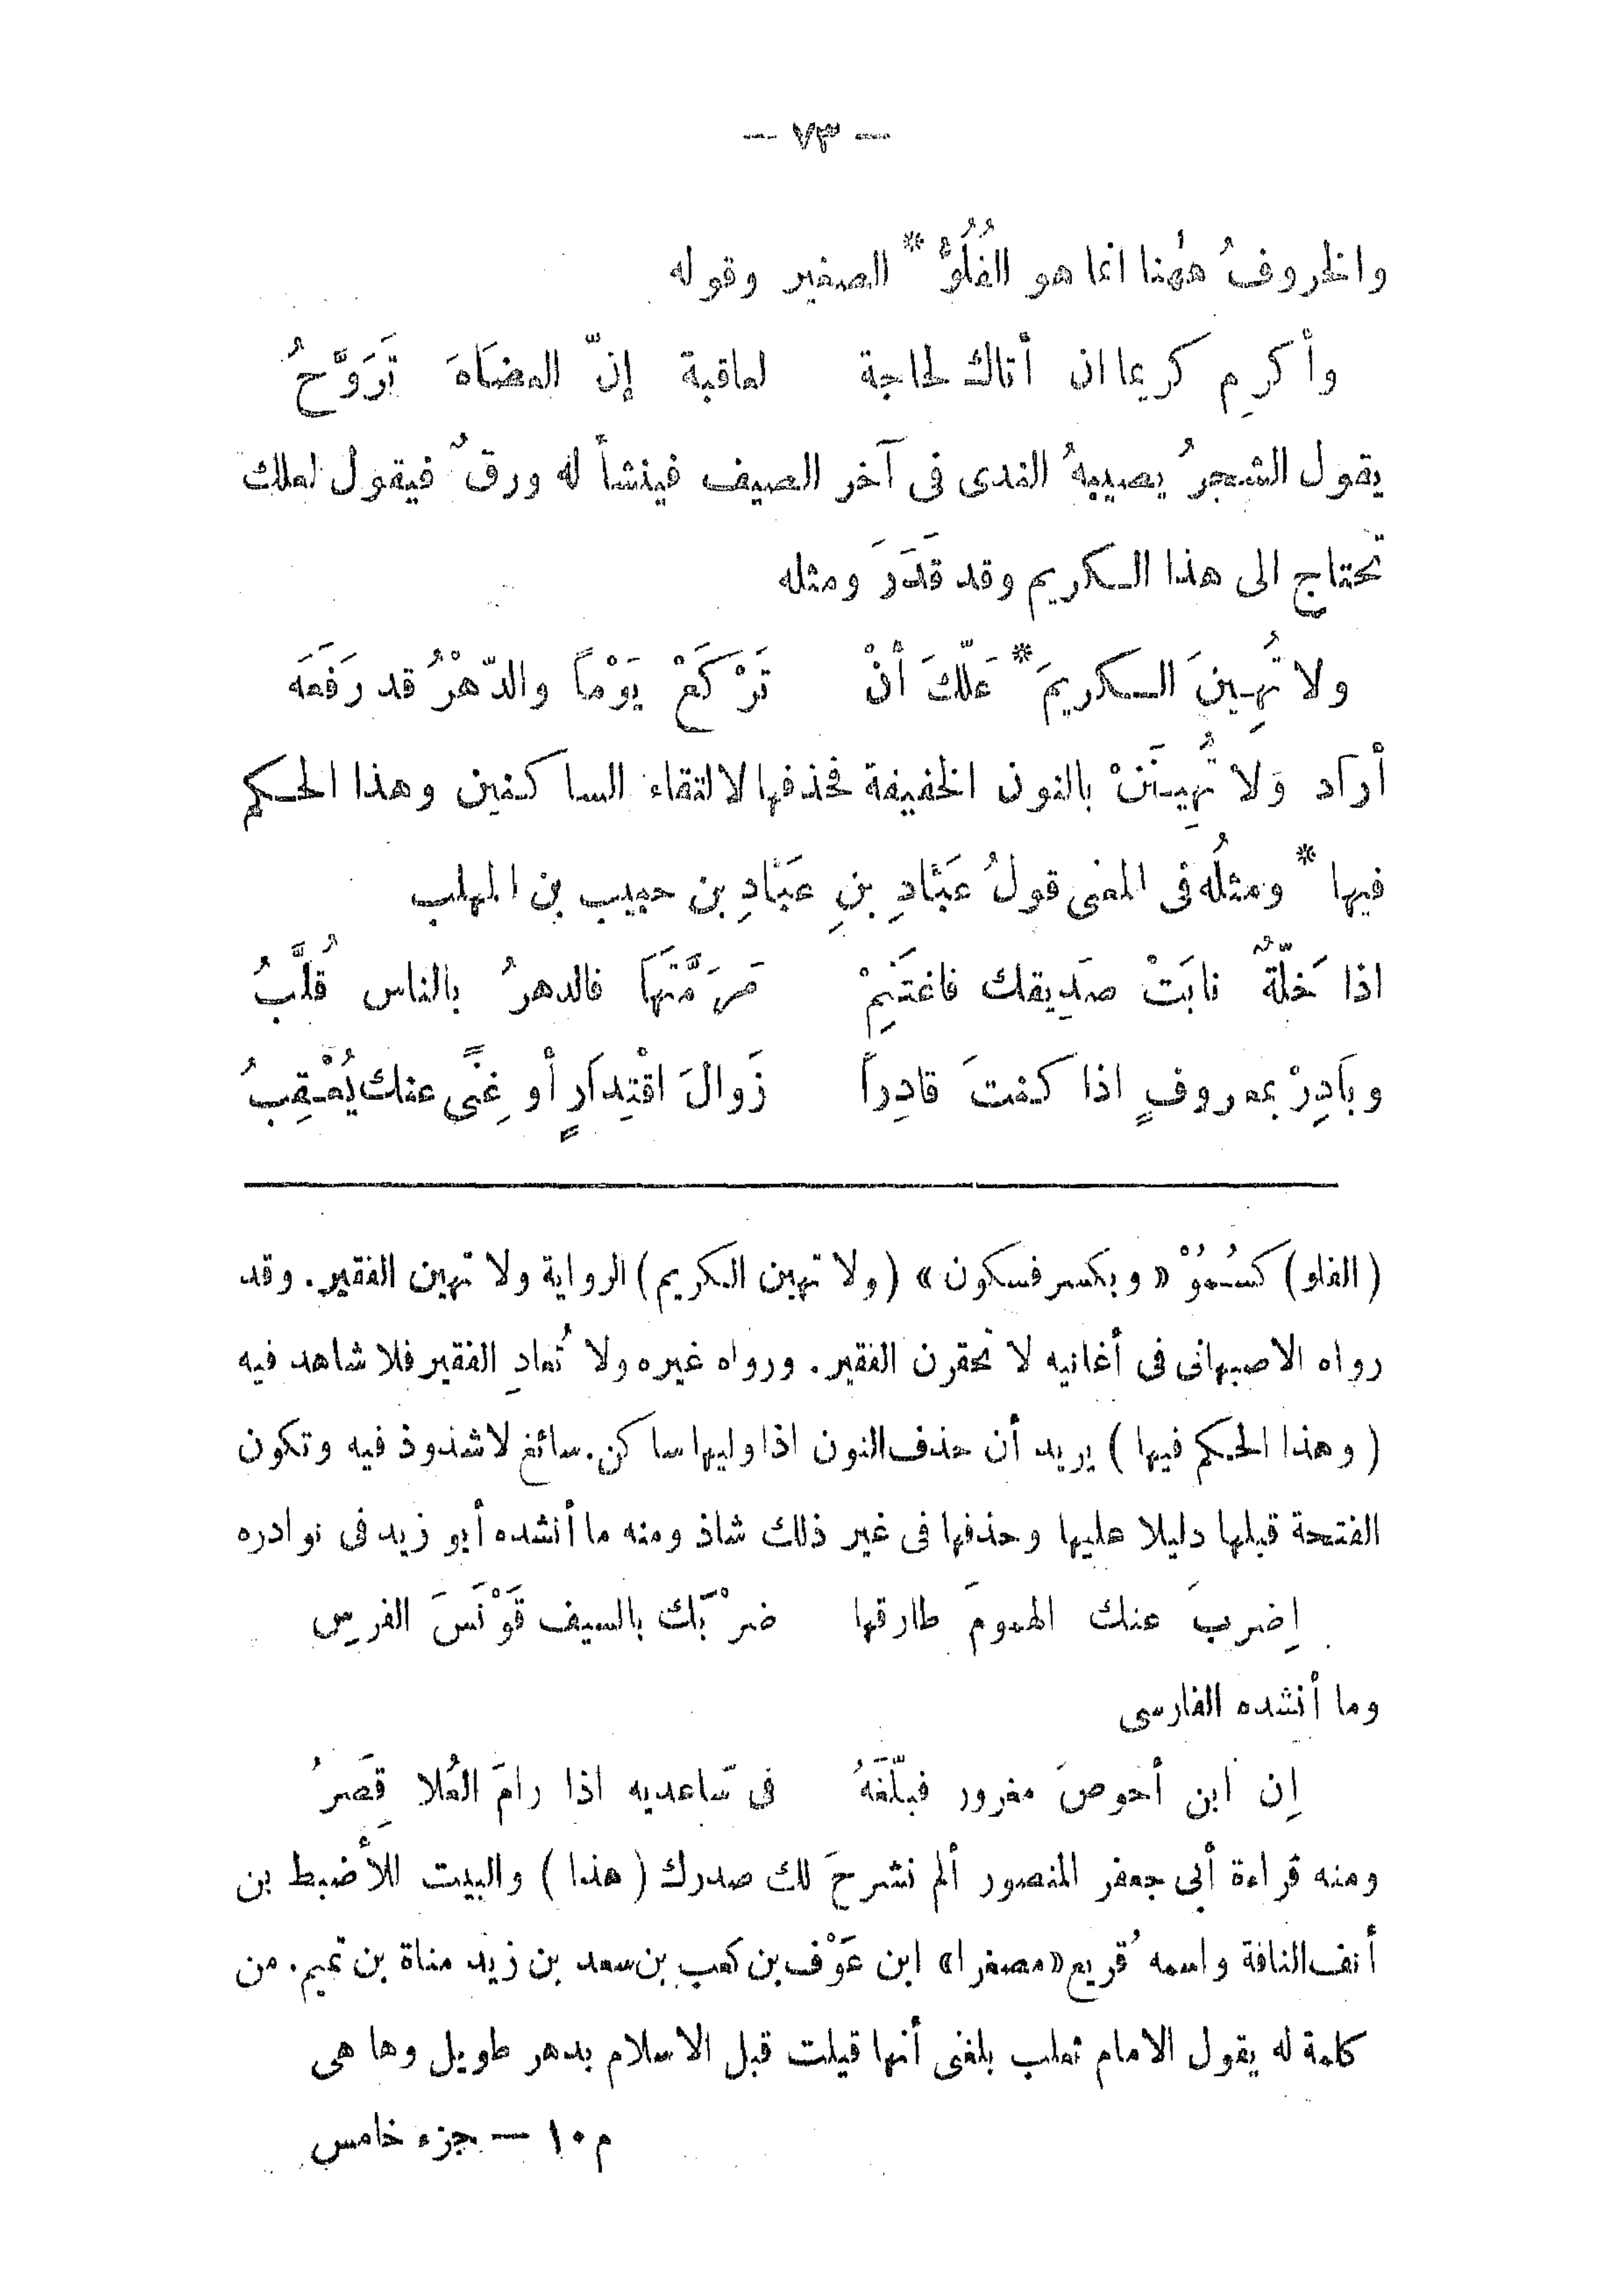 — ٧٣ —
والخروفُ هٰهُنا انما هو الفُلُوُّ * الصغير وقوله
وأكرِم كريما ان أتاك لحاجة لعاقبة إنّ العضَاهَ تَرَوَّحُ
يقول الشجرُ يصيبهُ الندى فى آخر الصيف فينشأ له ورقٌ فيقول لعلك
تحتاج الى هذا الكريم وقد قَدَرَ ومثله
ولا تُهِينَ الكريمَ * عَلّكَ أنْ تَرْكَعْ يَوْماً والدّهْرُ قد رَفَعَه
أراد وَلا تُهِينَنْ بالنون الخفيفة فحذفها لالتقاء الساكنين وهذا الحكم
فيها * ومثلُه فى المعنى قولُ عَبَّادِ بنِ عَبَّادِ بن حبيب بن المهلب
اذا خَلّةٌ نابَتْ صَدِيقك فاغتَنِمْ مَرَمَّتَهَا فالدهرُ بالناس قُلَّبُ
وبَادِرْ بمعروفٍ اذا كنتَ قادِراً زَوالَ اقْتِدارٍ أو غِنًى عنك يُعْقِبُ
(الفلو) كسُمُوْ «وبكسر فسكون» (ولا تهين الكريم) الرواية ولا تهين الفقير. وقد
رواه الاصبهانى فى أغانيه لا تحقرن الفقير. ورواه غيره ولا تُعادِ الفقير فلا شاهد فيه
(وهذا الحكم فيها) يريد أن حذف النون اذا وليها ساكن. سائغ لا شذوذ فيه وتكون
الفتحة قبلها دليلا عليها وحذفها فى غير ذلك شاذ ومنه ما أنشده أبو زيد فى نوادره
اِضربَ عنك الهمومَ طارقها ضرْبَك بالسيف قَوْنَسَ الفرسِ
وما أنشده الفارسى
اِن ابن أحوصَ مغرور فبلّغَهُ فى سَاعديه اذا رامَ العُلا قِصَرُ
ومنه قراءة أبى جعفر المنصور ألم نشرحَ لك صدرك (هذا) والبيت للأضبط بن
أنف الناقة واسمه قُريع «مصغرا» ابن عَوْف بن كعب بن سعد بن زيد مناة بن تميم. من
كلمة له يقول الامام ثعلب بلغنى أنها قيلت قبل الاسلام بدهر طويل وها هى
م ١٠ — جزء خامس